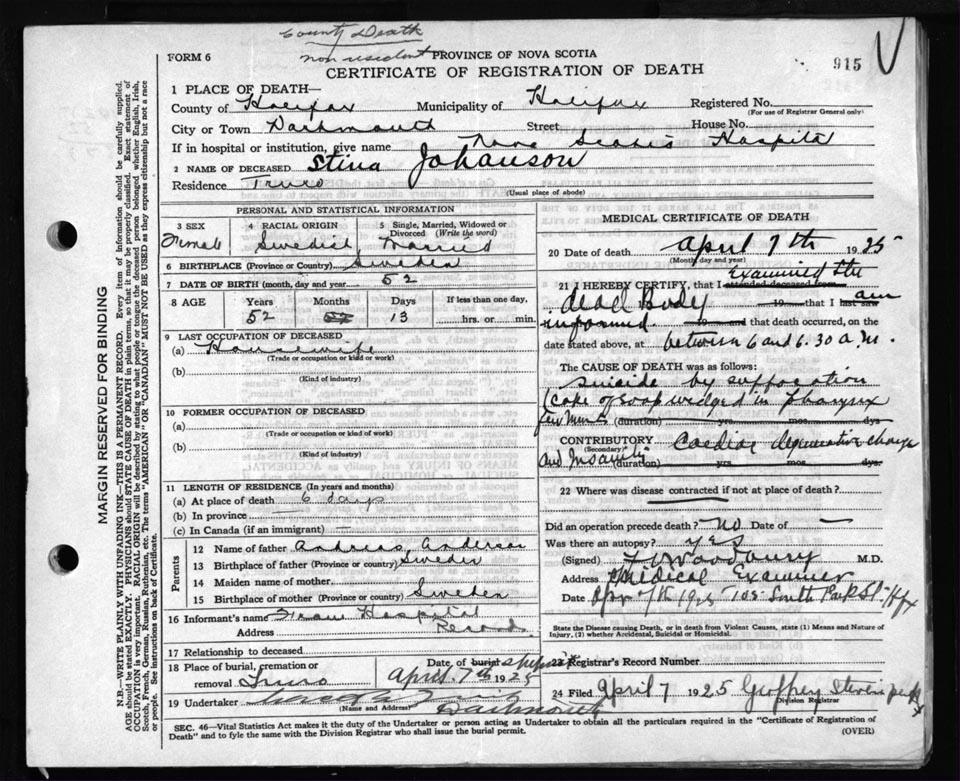 County Death
non resident
FORM 6
PROVINCE OF NOVA SCOTIA
CERTIFICATE OF REGISTRATION OF DEATH
915
1 PLACE OF DEATH—
County of Halifax Municipality of Halifax Registered No.
(For use of Registrar General only)
City or Town Dartmouth Street House No.
If in hospital or institution, give name Nova Scotia Hospital
2 NAME OF DECEASED Stina Johanson
Residence Truro
(Usual place of abode)
PERSONAL AND STATISTICAL INFORMATION
3 SEX Female
4 RACIAL ORIGIN Swedish
5 Single, Married, Widowed or Divorced (Write the word) Married
6 BIRTHPLACE (Province or Country) Sweden
7 DATE OF BIRTH (month, day and year) 52
8 AGE Years Months Days If less than one day,
52 13 hrs. or min.
9 LAST OCCUPATION OF DECEASED
(a) Housewife
(Trade or occupation or kind or work)
(b)
(Kind of industry)
10 FORMER OCCUPATION OF DECEASED
(a)
(Trade or occupation or kind of work)
(b)
(Kind of industry)
11 LENGTH OF RESIDENCE (In years and months)
(a) At place of death 6 days
(b) In province —
(c) In Canada (if an immigrant) —
Parents
12 Name of father Andreas Andersen
13 Birthplace of father (Province or country) Sweden
14 Maiden name of mother
15 Birthplace of mother (Province or country) Sweden
16 Informant's name From Hospital
Address Records
17 Relationship to deceased
18 Place of burial, cremation or Date of burial shipment
removal Truro April 7th 1925
19 Undertaker
(Name and Address) Dartmouth
MEDICAL CERTIFICATE OF DEATH
20 Date of death April 7th 1925
(Month, day and year)
Examined the
21 I HEREBY CERTIFY, that I attended deceased from
dead Body 19 that I last saw am
informed 19 and that death occurred, on
date stated above, at between 6 and 6.30 a.m.
The CAUSE OF DEATH was as follows:
Suicide by suffocation
(Cake of soap wedged in pharynx
few mints (duration) yrs. mos. dys
CONTRIBUTORY Cardiac degenerative change
(Secondary)
and Insanity (duration) yrs. mos. dys.
22 Where was disease contracted if not at place of death?
Did an operation precede death? No Date of —
Was there an autopsy? yes
(Signed) Woodbury M.D.
Address Medical Examiner
Date Apr 7th 1925 105 South Park St. Hfx
State the Disease causing Death, or in death from Violent Causes, state (1) Means and Nature of Injury, (2) whether Accidental, Suicidal or Homicidal.
23 Registrar's Record Number
24 Filed April 7 1925 Geoffrey
Division Registrar
SEC. 46—Vital Statistics Act makes it the duty of the Undertaker or person acting as Undertaker to obtain all the particulars required in the "Certificate of Registration of
Death" and to fyle the same with the Division Registrar who shall issue the burial permit. (OVER)
MARGIN RESERVED FOR BINDING
N.B.—WRITE PLAINLY WITH UNFADING INK—THIS IS A PERMANENT RECORD. Every item of information should be carefully supplied.
AGE should be stated EXACTLY. PHYSICIANS should STATE CAUSE OF DEATH in plain terms, so that it may be properly classified. Exact statement of
OCCUPATION is very important. RACIAL ORIGIN will be described by stating to what people or tongue the deceased person belonged whether English, Irish,
Scotch, French, German, Russian, Ruthenian, etc. The terms "AMERICAN" or "CANADIAN" MUST NOT BE USED as they express citizenship but not a race
or people. See instructions on back of Certificate.